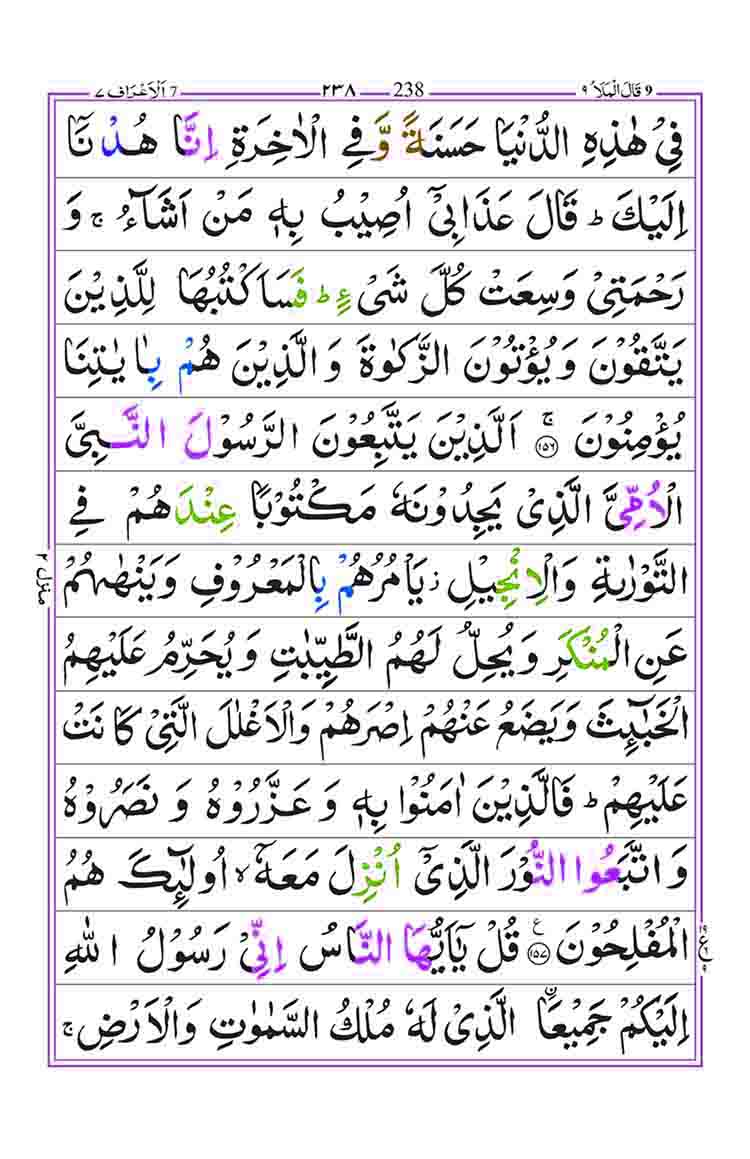 قَالَ الْمَلَاُ ٩ 9 238 ٢٣٨ 7 اَلْاَعْرَاف ٧
فِیْ هٰذِهِ الدُّنْیَا حَسَنَةً وَّ فِی الْاٰخِرَةِ اِنَّا هُدْنَاۤ
اِلَیْكَ ؕ قَالَ عَذَابِیْۤ اُصِیْبُ بِهٖ مَنْ اَشَآءُ ۚ وَ
رَحْمَتِیْ وَسِعَتْ كُلَّ شَیْءٍ ؕ فَسَاَكْتُبُهَا لِلَّذِیْنَ
یَتَّقُوْنَ وَیُؤْتُوْنَ الزَّكٰوةَ وَالَّذِیْنَ هُمْ بِاٰیٰتِنَا
یُؤْمِنُوْنَ ۚ ﴿۱۵۶﴾ اَلَّذِیْنَ یَتَّبِعُوْنَ الرَّسُوْلَ النَّبِیَّ
الْاُمِّیَّ الَّذِیْ یَجِدُوْنَهٗ مَكْتُوْبًا عِنْدَهُمْ فِی
التَّوْرٰىةِ وَالْاِنْجِیْلِ ؗ یَاْمُرُهُمْ بِالْمَعْرُوْفِ وَیَنْهٰىهُمْ
عَنِ الْمُنْكَرِ وَیُحِلُّ لَهُمُ الطَّیِّبٰتِ وَیُحَرِّمُ عَلَیْهِمُ
الْخَبٰٓئِثَ وَیَضَعُ عَنْهُمْ اِصْرَهُمْ وَالْاَغْلٰلَ الَّتِیْ كَانَتْ
عَلَیْهِمْ ؕ فَالَّذِیْنَ اٰمَنُوْا بِهٖ وَعَزَّرُوْهُ وَنَصَرُوْهُ
وَاتَّبَعُوا النُّوْرَ الَّذِیْۤ اُنْزِلَ مَعَهٗۤ ۙ اُولٰٓئِكَ هُمُ
الْمُفْلِحُوْنَ ﴿۱۵۷﴾ ع قُلْ یٰۤاَیُّهَا النَّاسُ اِنِّیْ رَسُوْلُ اللّٰهِ
اِلَیْكُمْ جَمِیْعَاۨ الَّذِیْ لَهٗ مُلْكُ السَّمٰوٰتِ وَالْاَرْضِ ۚ
منزل ٢
ع ٩